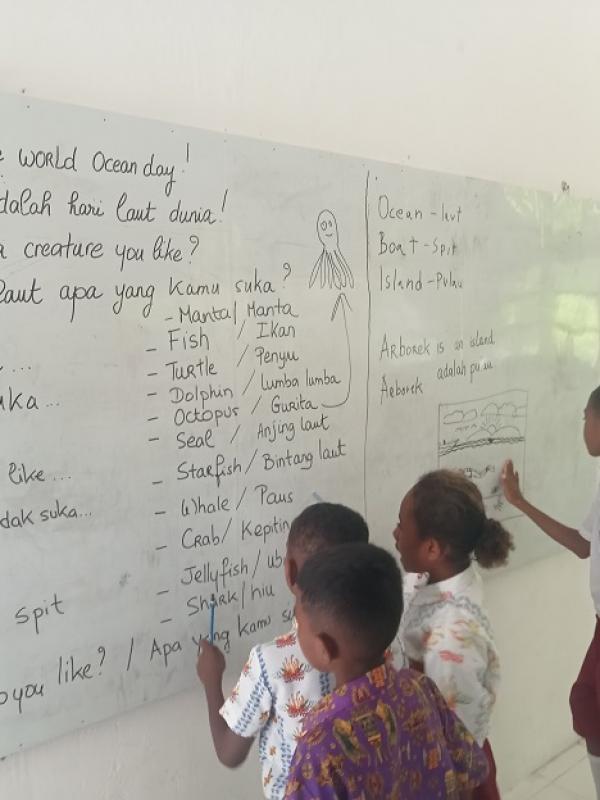 WORLD Ocean day!
dalah hari laut dunia!
creature you like?
laut apa yang kamu suka?
- Manta / Manta
- Fish / Ikan
- Turtle / Penyu
- Dolphin / Lumba lumba
- Octopus / Gurita
- Seal / Anjing laut
uka...
- Starfish / Bintang laut
like...
- Whale / Paus
dak suka...
- Crab / Kepitin
- Jellyfish / ub
- Shark / hiu
spit
you like? / Apa yang kamu
Ocean - laut
Boat - Spit
Island - Pulau
Arborek is an island
Arborek adalah pulau